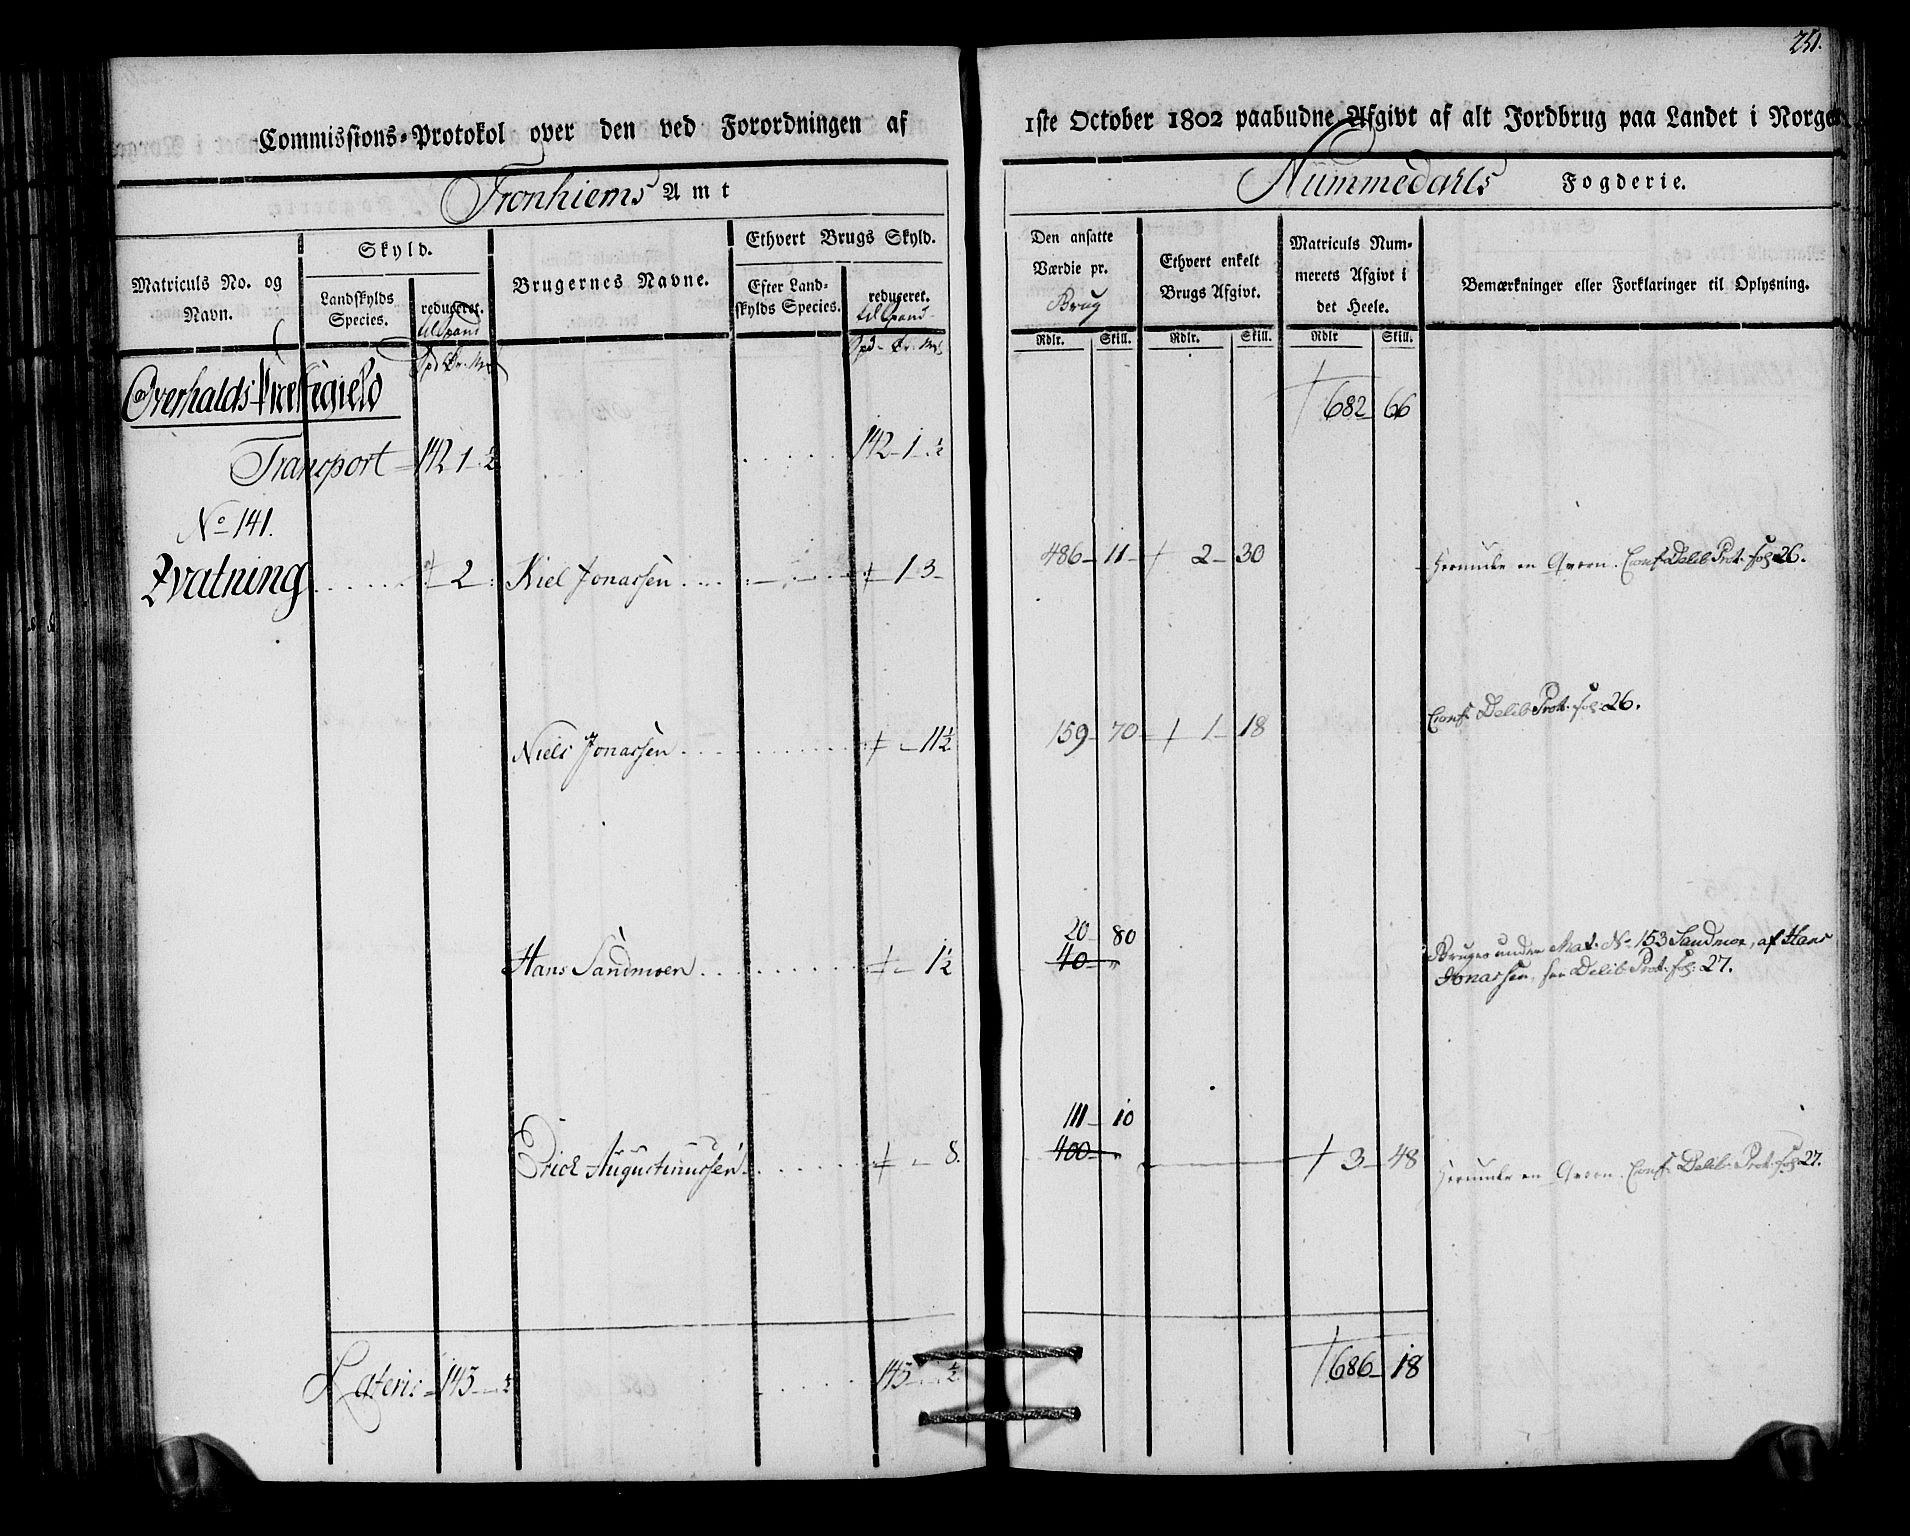 251.
Commissions-Protokol over den ved Forordningen af 1ste October 1802 paabudne Afgivt af alt Jordbrug paa Landet i Norge.
Tronhiems Amt
Nummedahls Fogderie.
Matriculs No. og Navn.
Skyld.
Landskylds Species.
reduceret.
til Spand
Spd Ør. Mk
Brugernes Navne.
Ethvert Brugs Skyld.
Efter Landskylds Species.
reduceret.
til Spand
Spd - Ør. Mk
Den ansatte Værdie pr.
Brug
Rdlr. Skill.
Ethvert enkelt Brugs Afgivt.
Rdlr. Skill.
Matriculs Nummerets Afgivt i det Heele.
Rdlr Skill.
Bemærkninger eller Forklaringer til Oplysning.
Overhalds Præstegield
682 66
Transport - 142 1 ½ 142 - 1 ½
No 141.
Qvatning 2 Kiel Jonassen 1 3 486 - 11 2 - 30 en Qvern. Conf Delib Prot. fol: 26.
Niels Jonassen 1 1½ 159 - 70 1 - 18 Conf. Delib Prot. fol: 26.
20 - 80
Hans Sandmoen 1½ 40 - „ Bruges under Mat. No 153 Sandmoe, af Hans
Jonassen, see Delib Prot. fol: 27.
111 - 10
Erick Augustinussen 8. 400 - „ 3 - 48 en Qvern. Conf. Delib. Prot. fol: 27.
Lateris - 145 - ½ 145 - ½ 686 - 18